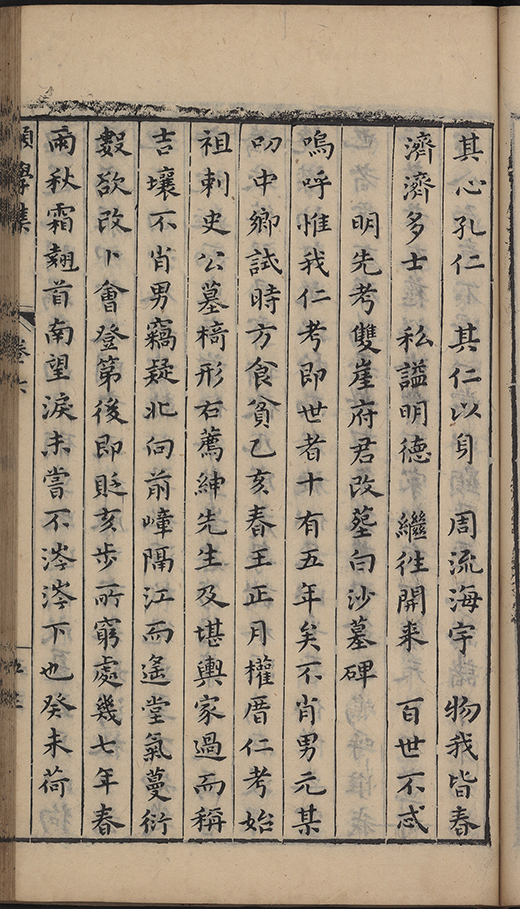 其心孔仁　其仁以身　周流海宇　物我皆春
濟濟多士　私謚明德　繼往開来　百世不忒
明先考雙崖府君改塟白沙墓碑
嗚呼惟我仁考即世者十有五年矣不肖男元某
叨中鄉試時方食貧乙亥春王正月權厝仁考始
祖刺史公墓椅形右薦紳先生及堪輿家過而稱
吉壤不肖男竊疑北向前嶂隔江而遙堂氣蔓衍
數欲改卜會登第後即貶亥步所窮處幾七年春
雨秋霜翹首南望淚未嘗不涔涔下也癸未荷
願學集
卷六